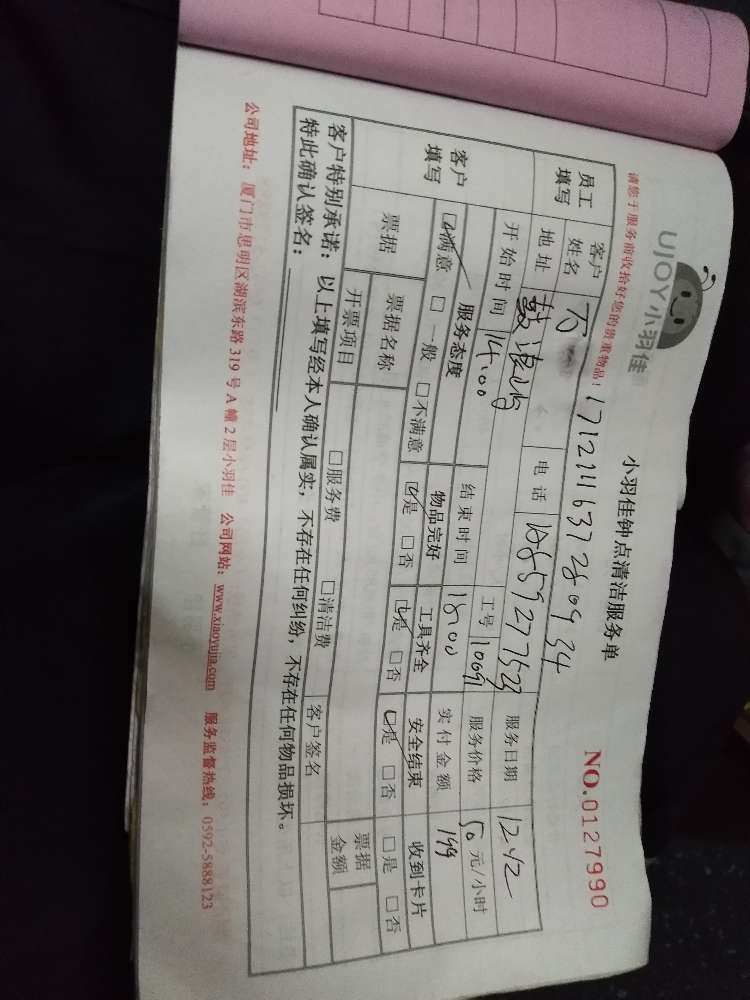 UJOY小羽佳
小羽佳钟点清洁服务单
NO.0127990
请您于服务前收拾好您的贵重物品！
1712111637280934
员工填写
客户姓名
电话
服务日期
地址 鼓浪屿
工号 10091
服务价格 50 元/小时
客户填写
开始时间 14:00
结束时间 18:00
实付金额 199
服务态度
物品完好
工具齐全
安全结束
收到卡片
☑满意 □一般 □不满意
☑是 □否
☑是 □否
☑是 □否
□是 □否
票据
票据名称
票据金额
开票项目
□服务费 □清洁费
客户签名
客户特别承诺：以上填写经本人确认属实，不存在任何纠纷，不存在任何物品损坏。
特此确认签名：
公司地址：厦门市思明区湖滨东路319号A幢2层小羽佳 公司网站：www.xiaoyujia.com 服务监督热线：0592-5888123